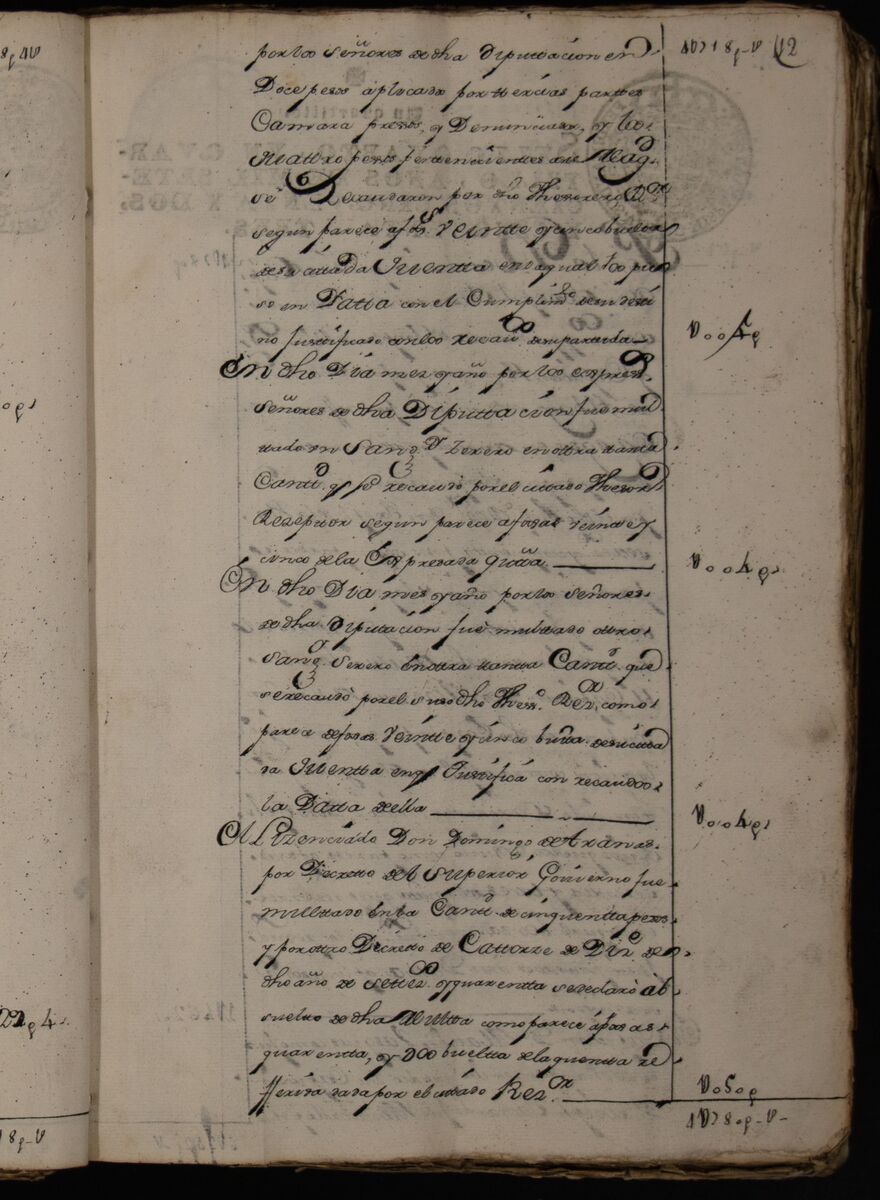 por los señores de dha Diputtacion en
Doce pesos aplicado por ttercias parttes
Camara presos, y Denunciador, y los
quattro pesos perttenecienttes a su Magd.
se Recaudaron por dho Thesorero Ror
segun parece a fos. Veintte y cinco buelta
de su cittada Quentta en la qual los pu
so en Datta con el Cumplimto de su desti
no justificado con los recaus. de su partida
En dho Dia mes y año por los expresds.
señores de dha Diputtacion fue mul
ttado en Sango. Zerero en ottra tanta
Cantd. q se recaudo por el cittado Thesoro.
Rezeptor segun parece a fosas veinte y
cinco de la Expresada quta
En dho Dia mes y año por los señores
de dha Diputacion fue multado otro
Sango. Serero en otra tantta Cantd. que
se recaudò por el suso dho Theso. Rezor, como
parece a fosas Veintte y cinco butta. de su citta
da Quentta en q Justifica con recaudos
la Datta della
El Lizenciado Don Domingo de Aranas
por Decretto del Superior Govierno fue
multtado en la Cantd. de cinquentta pesos
y por ottro Decretto de Cattorze de Dize. de
dho año de settezs. y quarentta se declarò ab
suelto de dha Multta como parece a fosas
quarentta, y dos bueltta de la quentta re
fferida dada por el cittado Rezor.
12
V o o 4 p
V o o 4 p s
V o o 4 p s
V o 5 o p